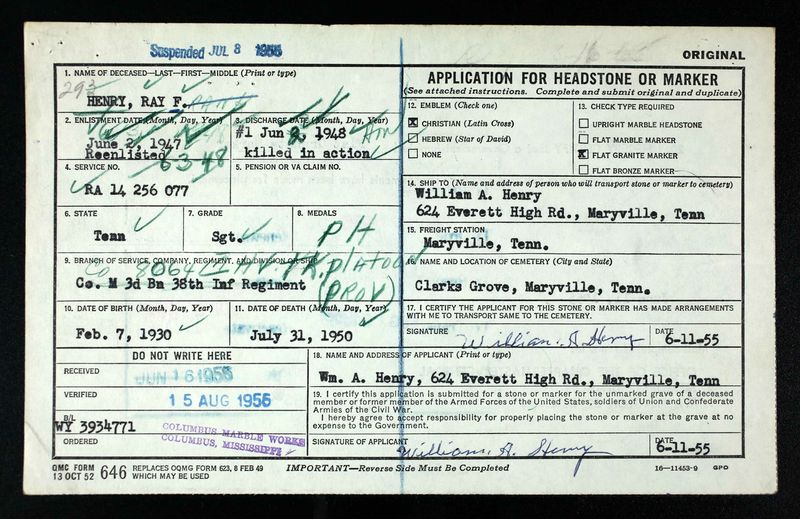 Suspended JUL 8 1955
ORIGINAL
1. NAME OF DECEASED—LAST—FIRST—MIDDLE (Print or type)
293
HENRY, RAY F.
2. ENLISTMENT DATE (Month, Day, Year)
June 2, 1947
Reenlisted
6 3 48
3. DISCHARGE DATE (Month, Day, Year)
#1 Jun 2 1948
killed in action
4. SERVICE NO.
RA 14 256 077
5. PENSION OR VA CLAIM NO.
6. STATE
Tenn
7. GRADE
Sgt.
8. MEDALS
PH
9. BRANCH OF SERVICE, COMPANY, REGIMENT, AND DIVISION OR SHIP
Co 8064
Co. M 3d Bn 38th Inf Regiment
(PROV)
10. DATE OF BIRTH (Month, Day, Year)
Feb. 7, 1930
11. DATE OF DEATH (Month, Day, Year)
July 31, 1950
DO NOT WRITE HERE
RECEIVED
JUN 16 1955
VERIFIED
15 AUG 1955
B/L
WY 3934771
ORDERED
COLUMBUS MARBLE WORKS
COLUMBUS, MISSISSIPPI
APPLICATION FOR HEADSTONE OR MARKER
(See attached instructions. Complete and submit original and duplicate)
12. EMBLEM (Check one)
X CHRISTIAN (Latin Cross)
HEBREW (Star of David)
NONE
13. CHECK TYPE REQUIRED
UPRIGHT MARBLE HEADSTONE
FLAT MARBLE MARKER
X FLAT GRANITE MARKER
FLAT BRONZE MARKER
14. SHIP TO (Name and address of person who will transport stone or marker to cemetery)
William A. Henry
624 Everett High Rd., Maryville, Tenn
15. FREIGHT STATION
Maryville, Tenn.
16. NAME AND LOCATION OF CEMETERY (City and State)
Clarks Grove, Maryville, Tenn.
17. I CERTIFY THE APPLICANT FOR THIS STONE OR MARKER HAS MADE ARRANGEMENTS
WITH ME TO TRANSPORT SAME TO THE CEMETERY.
SIGNATURE
William A. Henry
DATE
6-11-55
18. NAME AND ADDRESS OF APPLICANT (Print or type)
Wm. A. Henry, 624 Everett High Rd., Maryville, Tenn
19. I certify this application is submitted for a stone or marker for the unmarked grave of a deceased
member or former member of the Armed Forces of the United States, soldiers of Union and Confederate
Armies of the Civil War.
I hereby agree to accept responsibility for properly placing the stone or marker at the grave at no
expense to the Government.
SIGNATURE OF APPLICANT
William. A. Henry
DATE
6-11-55
QMC FORM
13 OCT 52
646
REPLACES OQMG FORM 623, 8 FEB 49
WHICH MAY BE USED
IMPORTANT—Reverse Side Must Be Completed
16—11453-9 GPO